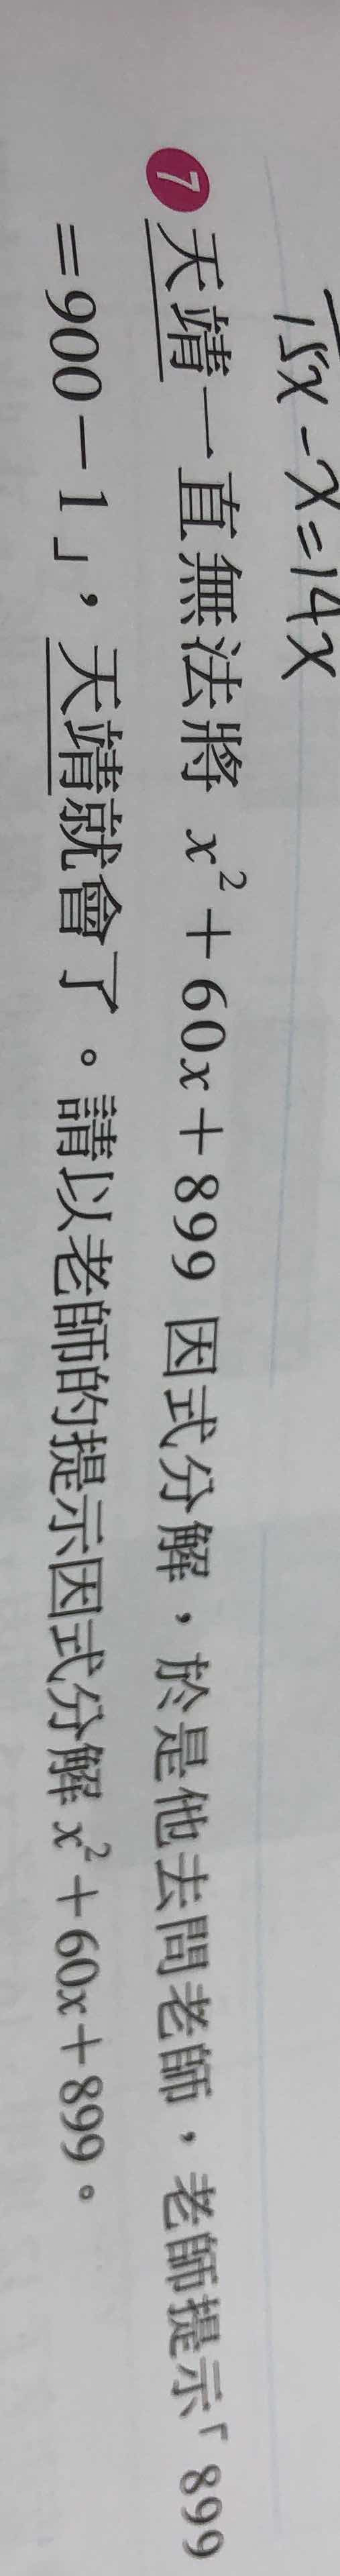 15x-x=14x
7 天靖一直無法將 x²+60x+899 因式分解，於是他去問老師，老師提示「899
=900-1」，天靖就會了。請以老師的提示因式分解 x²+60x+899。